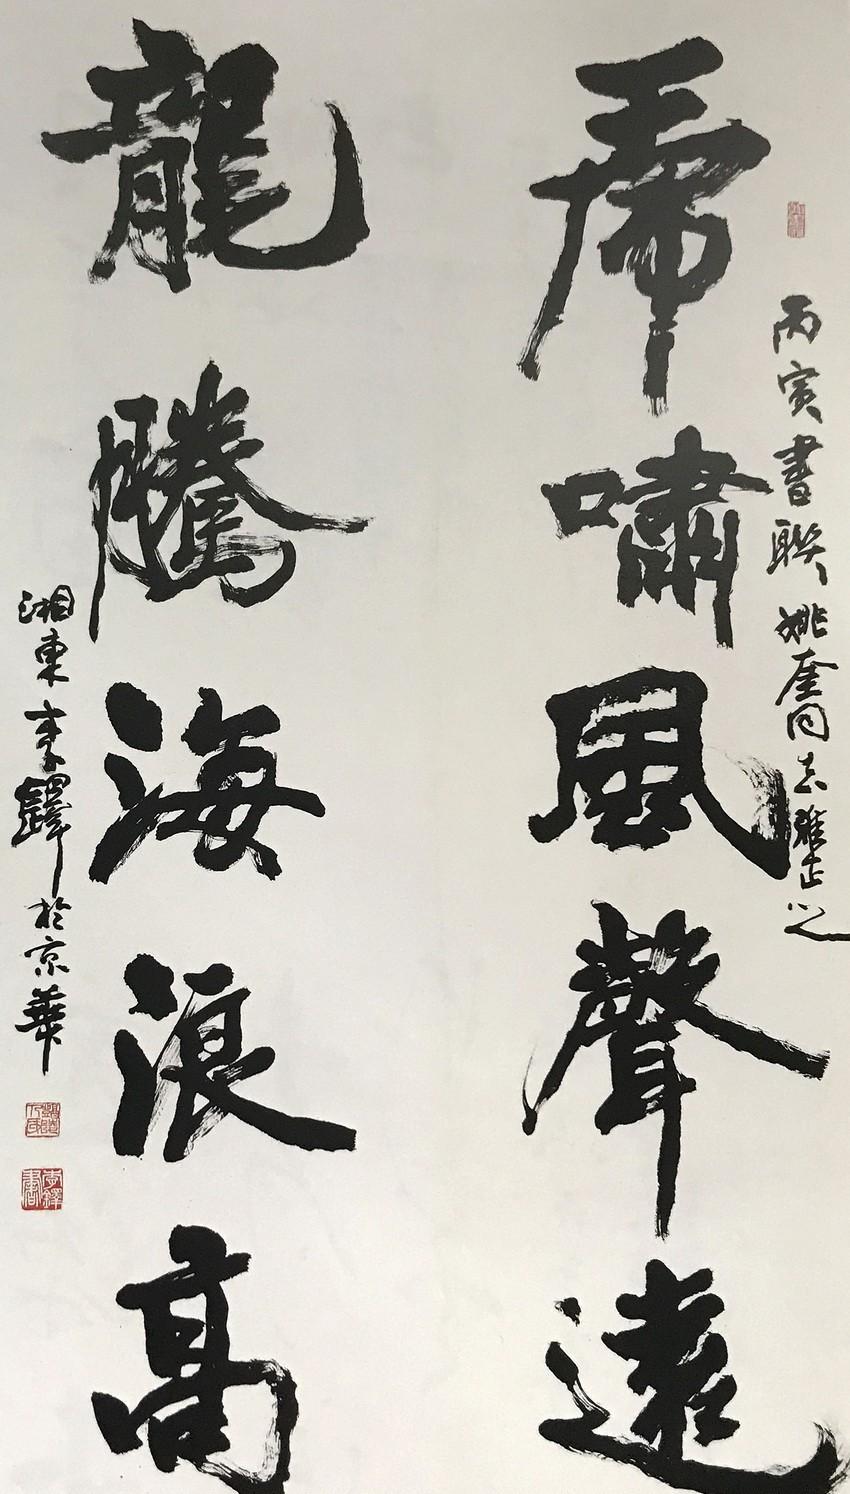 丙寅書聯姚奎同志雅正之
虎嘯風聲遠
龍騰海浪高
湘東李鐸於京華
李鐸書